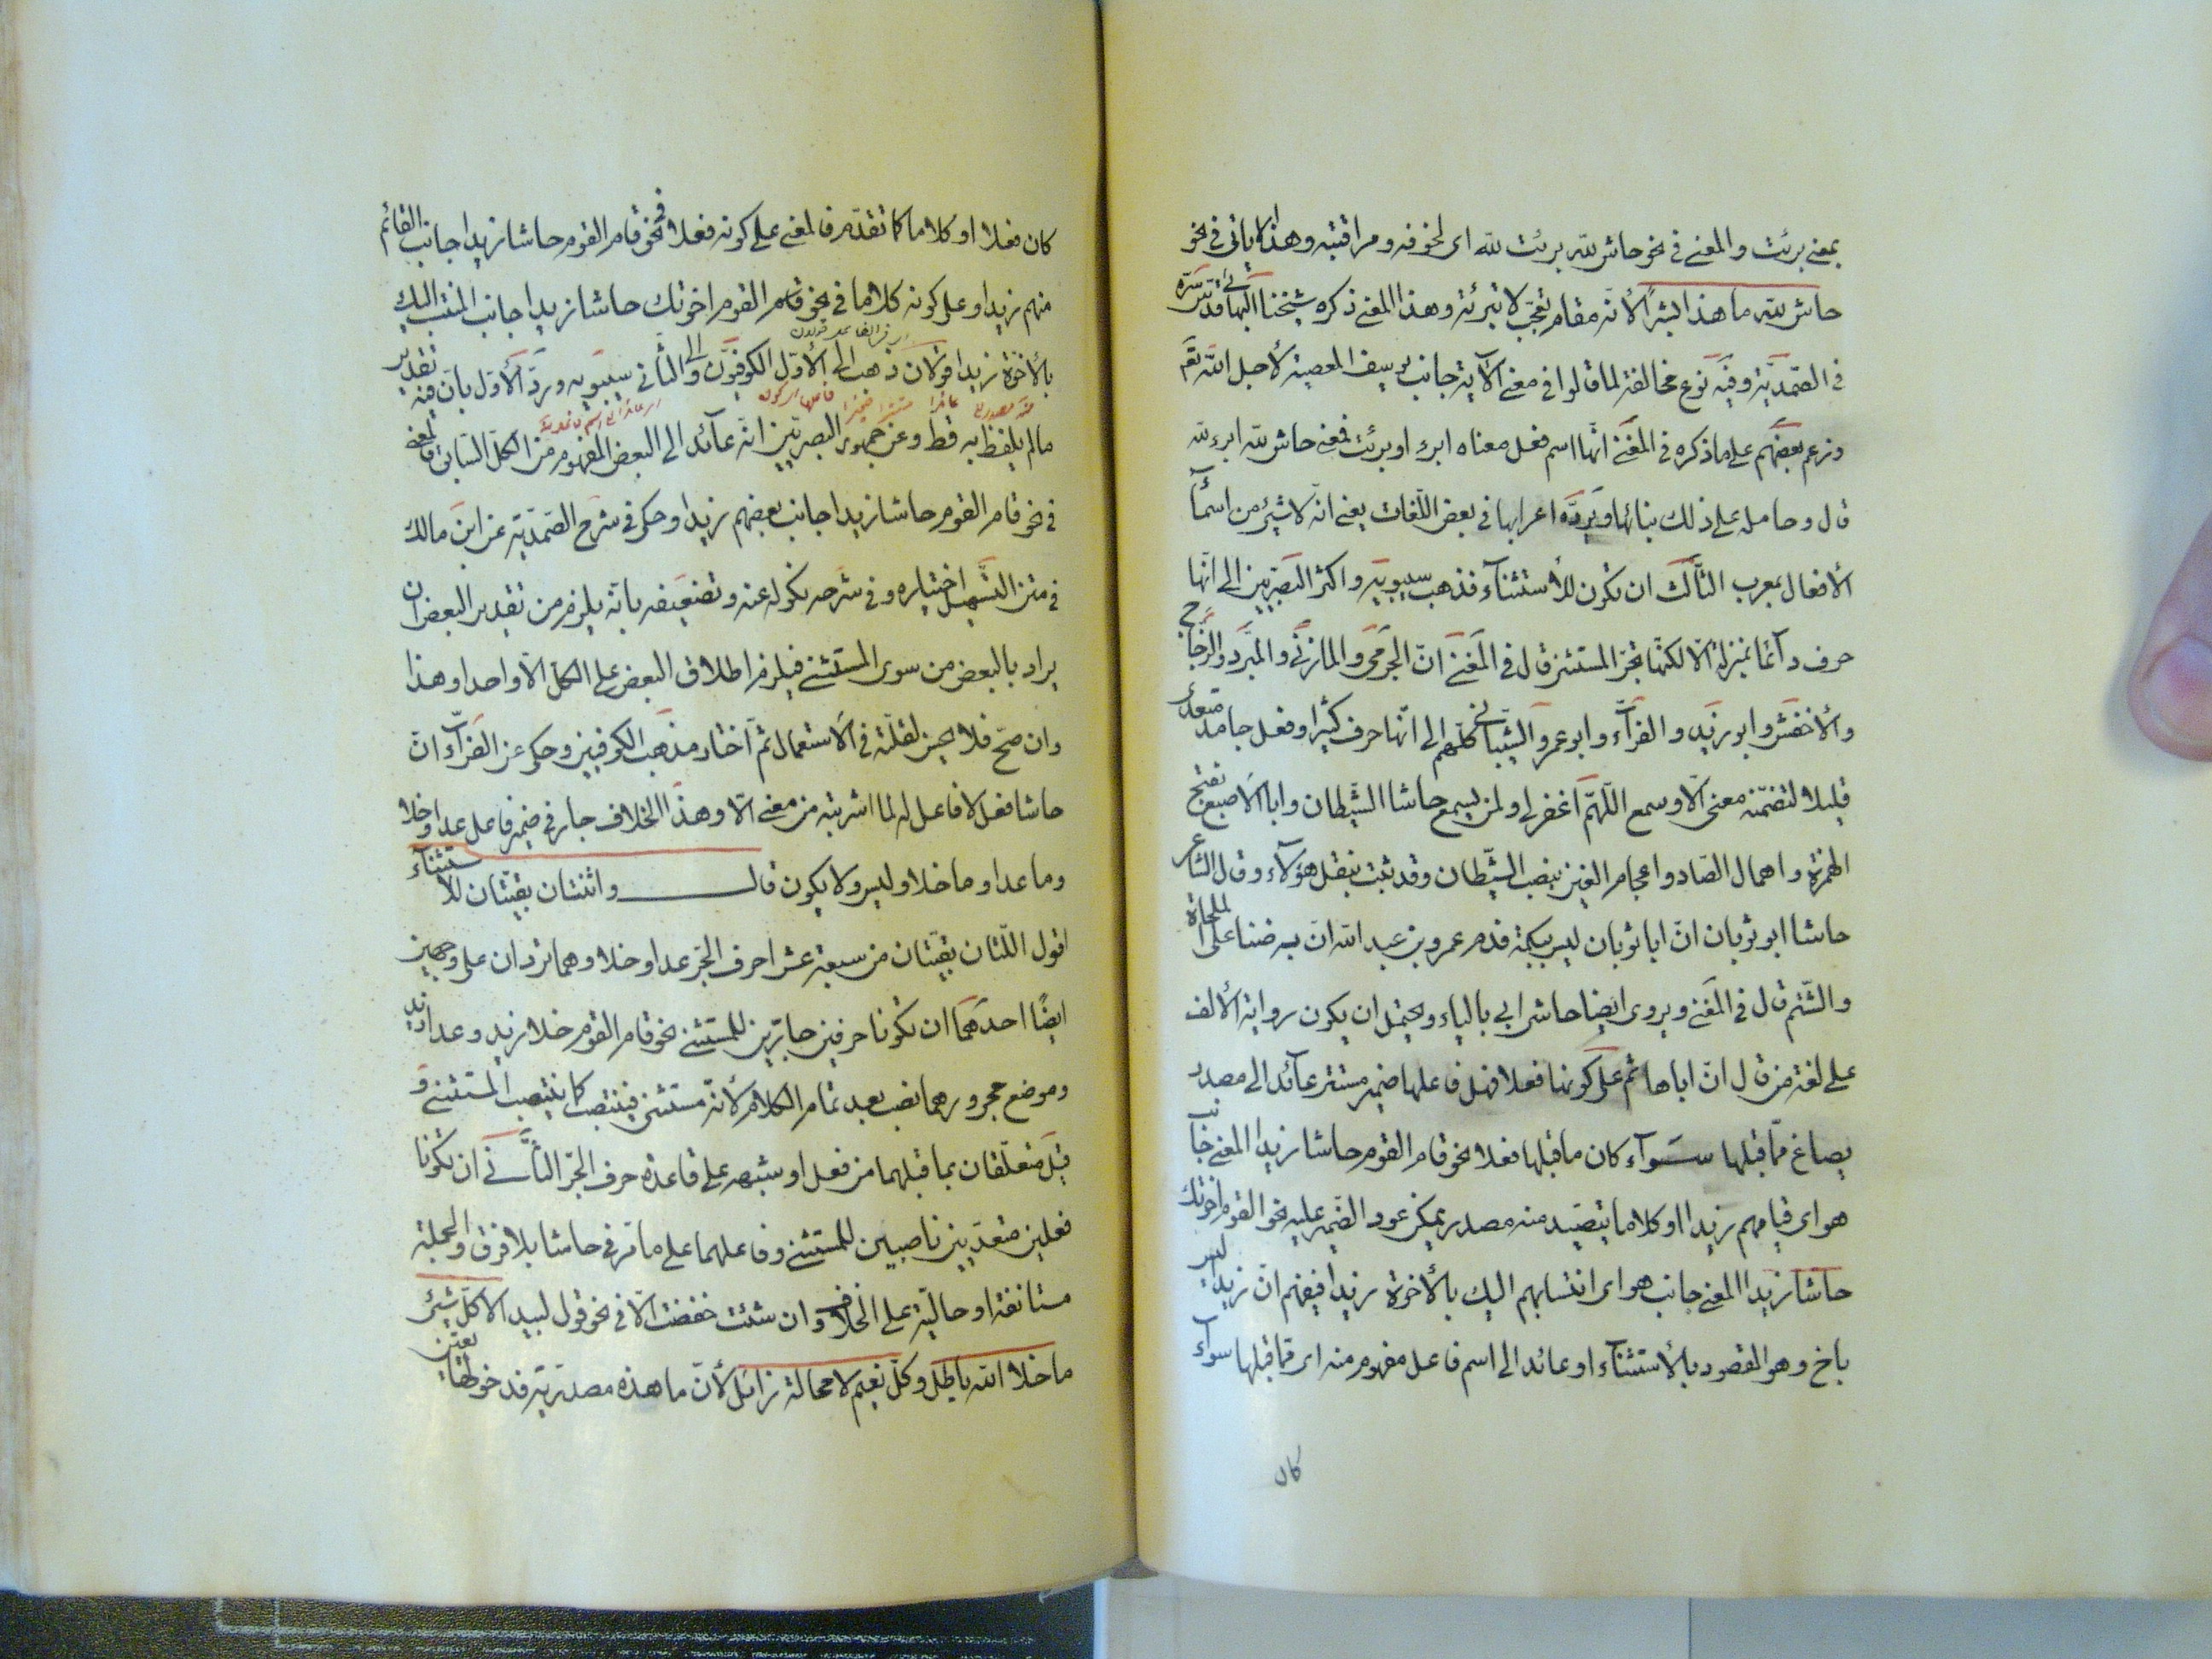 بمعنى برئت والمعنى في نحو حاش لله برئت لله اى لخوفه ومراقبته وهذا لا ياتي في نحو
حاش لله ما هذا بشرا لأنه مقام تعجّب لا تبرئة وهذا المعنى ذكره شيخنا البهائى قدّس سرّه
في الصّمديّة وفيه نوع مخالفة لما قالوا في معنى الآية جانب يوسف المعصية لأجل الله نعم
وزعم بعضهم على ما ذكره في المغنى انّها اسم فعل معناه ابرء او برئت فمعنى حاش لله ابرء لله
قال وحامله على ذلك بنائها ويردّه اعرابها في بعض اللّغات يعنى انّه لا شيئ من اسمآء
الأفعال بمعرب الثّالث ان تكون للأستثنآء فذهب سيبويه واكثر البصريّين الى انّها
حرف دآئما بمنزلة الّا لكنّها تجرّ المستثنى قال في المغنى انّ الجرمى والمازنّى والمبرّد والزّجّاج
والأخفش وابو زيد والفرّآء وابو عمرو الشّيبانى كلّهم الى انّها حرف كثيرا وفعل جامد متعدّ
قليلا لتضمّنه معنى الّا وسمع اللّهمّ اغفر لى ولمن يسمع حاشا الشّيطان وابا الأصبغ بفتح
الهمزة واهمال الصّاد واعجام الغين بنصب الشّيطان وقد ثبت بنقل هؤلآء وقال الشاعر
حاشا ابو ثوبان انّ ابا ثوبان ليس ببكمة فدم عمرو بن عبد الله انّ به ضنا على الملحاة
والشّتم قال في المغنى ويروى ايضا حاشى ابى بالياء ويحتمل ان يكون رواية الألف
على لغة من قال انّ اباها ثم على كونها فعلا فهل فاعلها ضمير مستتر عآئد الى مصدر
يصاغ ممّا قبلها سوآء كان ما قبلها فعلا نحو قام القوم حاشا زيدا المعنى جانب
هو اى قيامهم زيدا او كلاما يتصيّد منه مصدر يمكن عود الضّمير عليه نحو القوم اخوتك
حاشا زيدا المعنى جانب هو اى انتسابهم اليك بالأخوة زيدا فيفهم انّ زيدا ليس
باخ وهو المقصود بالأستثنآء او عائد الى اسم فاعل مفهوم منه اى ممّا قبلها سوآء
كان
كان فعلا او كلاما كما تقدّم فالمعنى على كونه فعلا في نحو قام القوم حاشا زيدا جانب القائم
منهم زيدا وعلى كونه كلاما في نحو قام القوم اخوتك حاشا زيدا جانب المنتسب اليك
بالأخوّة زيدا قولان ذهب الى الأوّل الكوفيّون والى الثّانى سيبويه وردّ الأوّل بانّ فيه تقدير
ما لم يلفظ به قط وعن جمهور البصريّين انّه عآئد الى البعض المفهوم من الكلّ السّابق فالمعنى
في نحو قام القوم حاشا زيدا جانب بعضهم زيدا وحكى في شرح الصّمديّة عن ابن مالك
في متن التّسهيل اختياره وفي شرحه نكوله عنه وتضعيفه بانّه يلزم من تقدير البعض ان
يراد بالبعض من سوى المستثنى فيلزم اطلاق البعض على الكلّ الّا واحدا وهذا
وان صحّ فلا يحسن لقلّته في الأستعمال ثمّ اختار مذهب الكوفيين وحكى عن الفرّآء انّ
حاشا فعل لا فاعل له لما اشربته من معنى الّا وهذا الخلاف جار في ضمير فاعل عدا وخلا
وما عدا وما خلا وليس ولا يكون قال واثنتان بقيّتان للأستثنآء
اقول اللّتان بقيّتان من سبعة عشر احرف الجرّ عدا وخلا وهما تردان على وجهين
ايضًا احدهما ان تكونا حرفين جارّين للمستثنى نحو قام القوم خلا زيد وعدا زيد
وموضع مجرورهما نصب بعد تمام الكلام لأنّه مستثنى فينتصب كما ينتصب المستثنى و
قيل متعلّقان بما قبلهما من فعل او شبهه على قاعدة حرف الجرّ الثّانى ان تكونا
فعلين متعدّيين ناصبين للمستثنى وفاعلهما على ما مرّ في حاشا بلا فرق والجملة
مستانفة او حاليّة على الخلاف وان شئت خفضت الّا في نحو قول لبيد الا كلّ شيئ
ما خلا الله باطل وكلّ نعيم لا محالة زائل لأنّ ما هذه مصدريّة فدخولها يعيّن